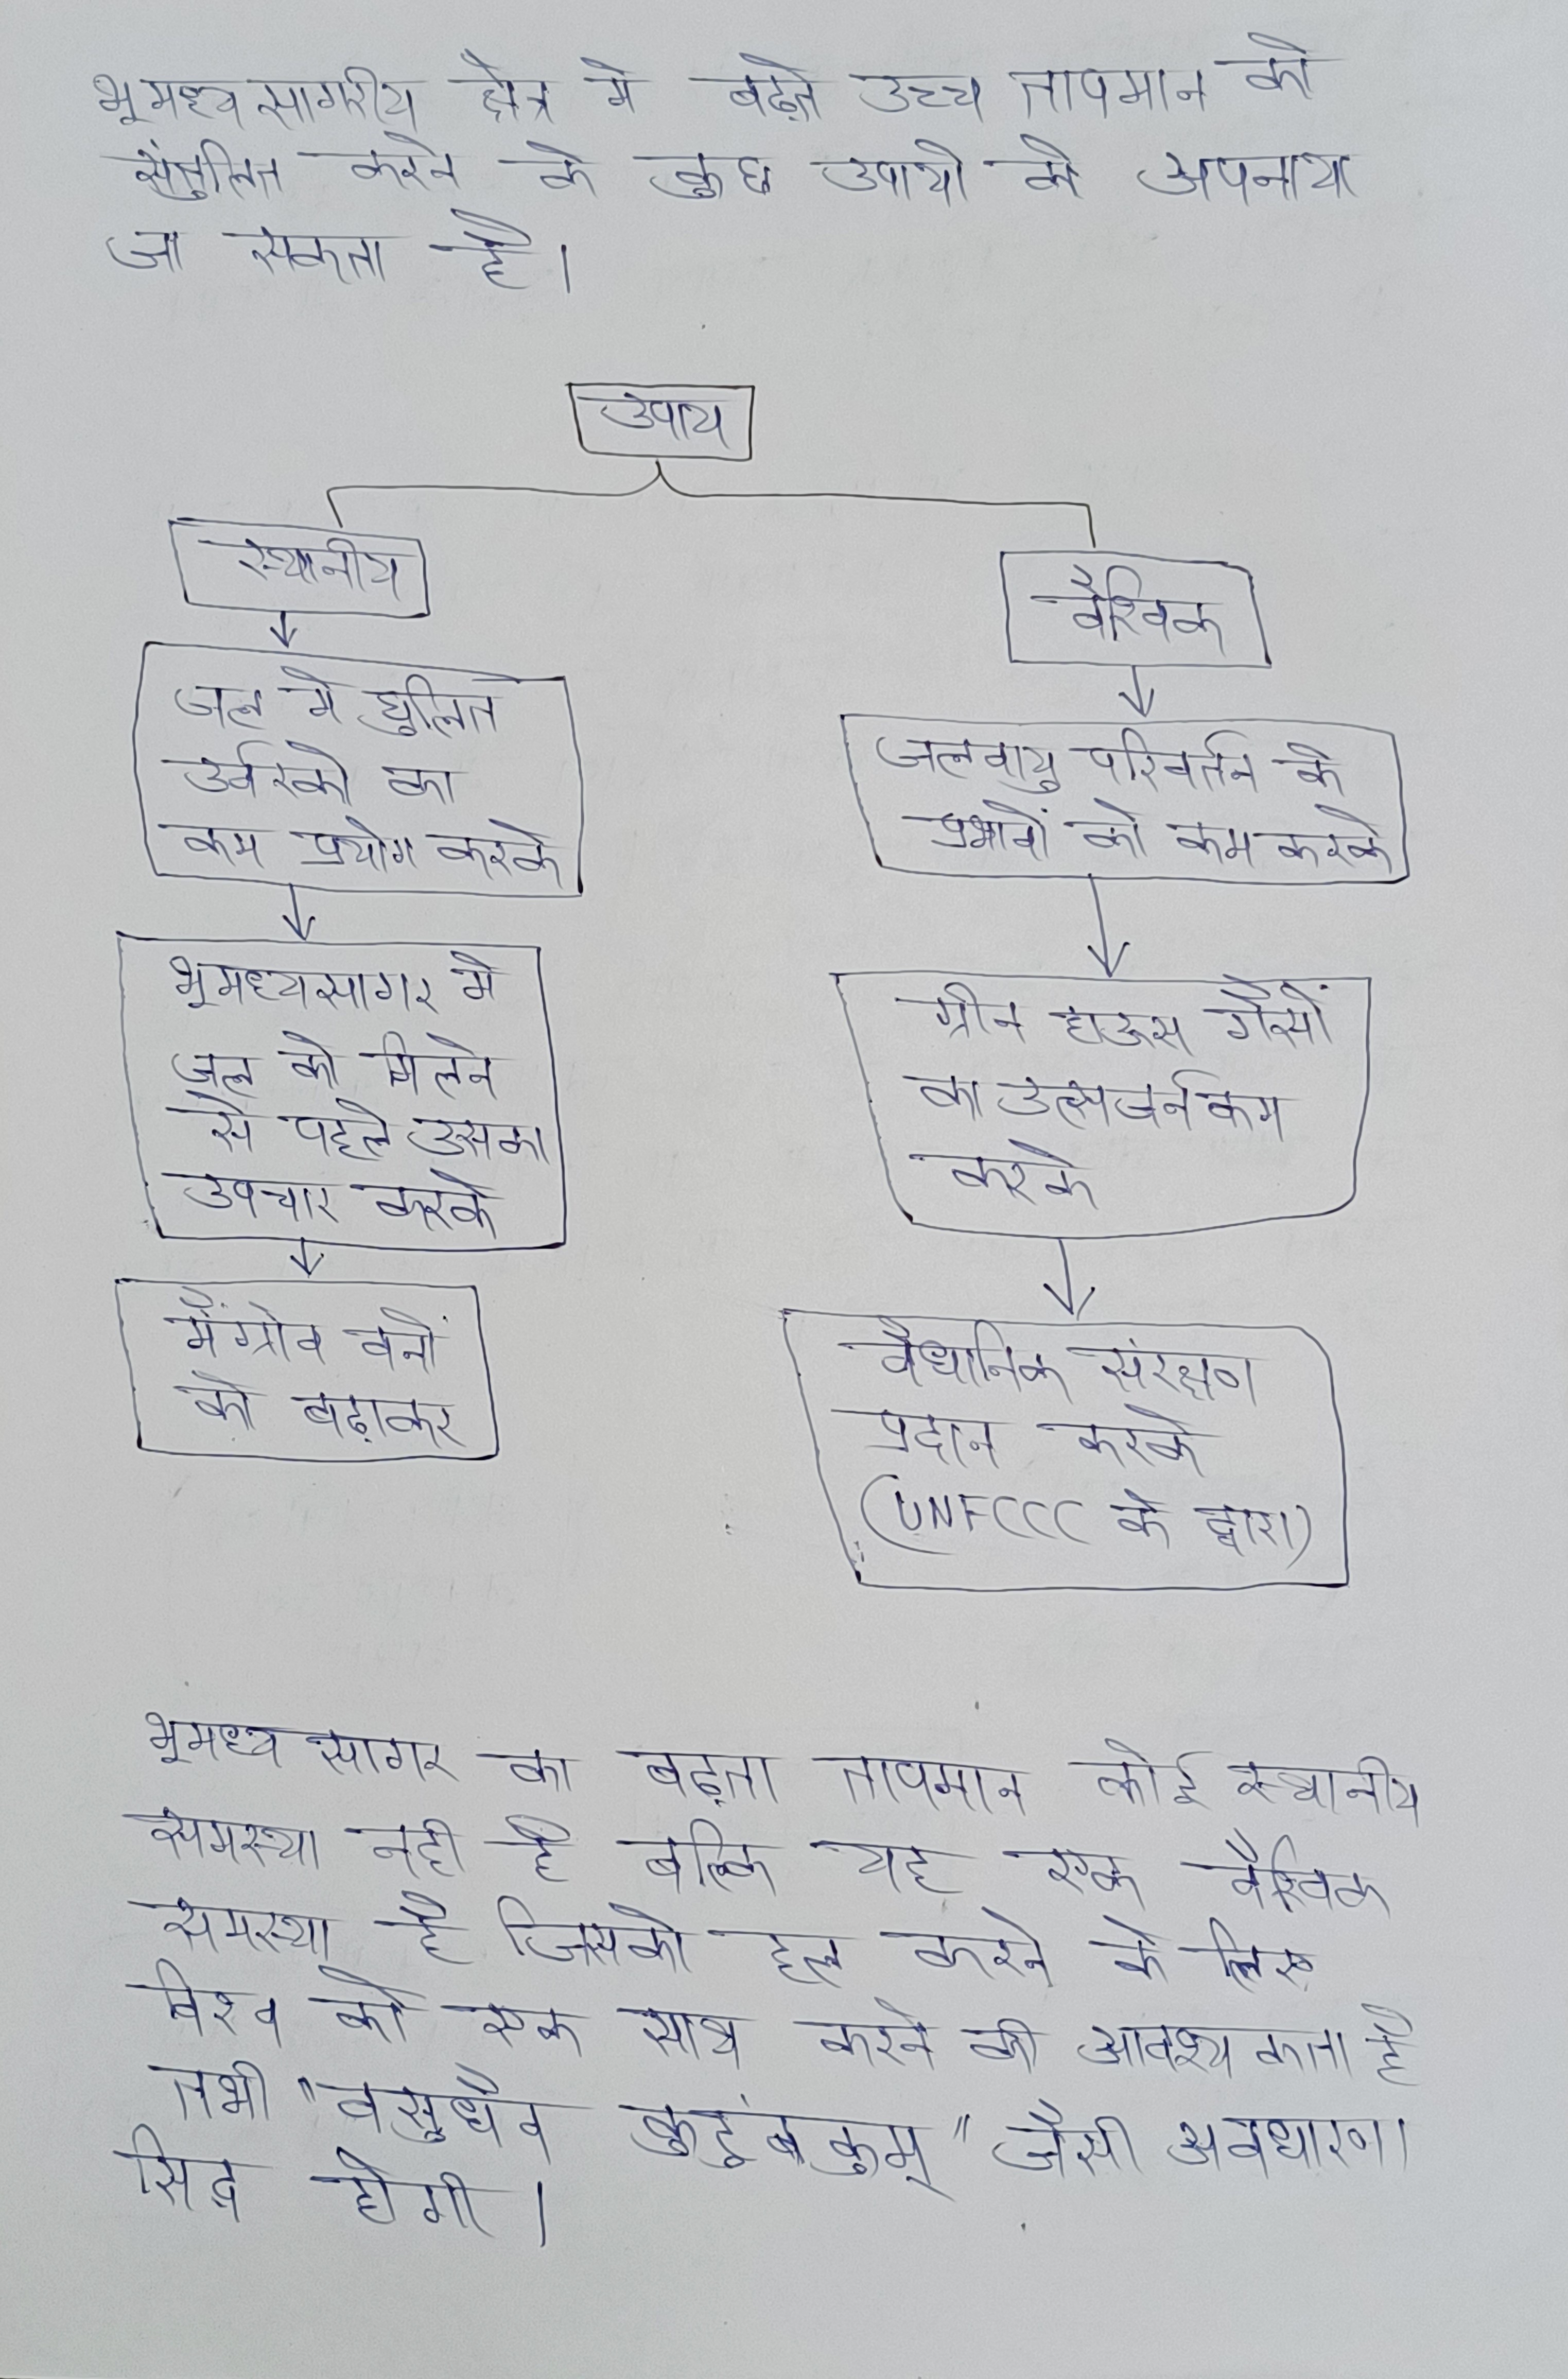 भूमध्य सागरीय क्षेत्र मे बढ़ते उच्च तापमान को
संतुलित करने के कुछ उपायो को अपनाया
जा सकता है।
उपाय
स्थानीय
जल मे घुलित
उर्वरको का
कम प्रयोग करके
भूमध्यसागर मे
जल को मिलने
से पहले उसका
उपचार करके
मैंग्रोव वनों
को बढ़ाकर
वैश्विक
जलवायु परिवर्तन के
प्रभावों को कम करके
ग्रीन हाऊस गैसों
का उत्सर्जन कम
करके
वैधानिक संरक्षण
प्रदान करके
(UNFCCC के द्वारा)
भूमध्य सागर का बढ़ता तापमान कोई स्थानीय
समस्या नही है बल्कि यह एक वैश्विक
समस्या है जिसको हल करने के लिए
विश्व को एक साथ करने की आवश्यकता है
तभी "वसुधैव कुटुंबकुम्" जैसी अवधारणा
सिद्ध होगी।